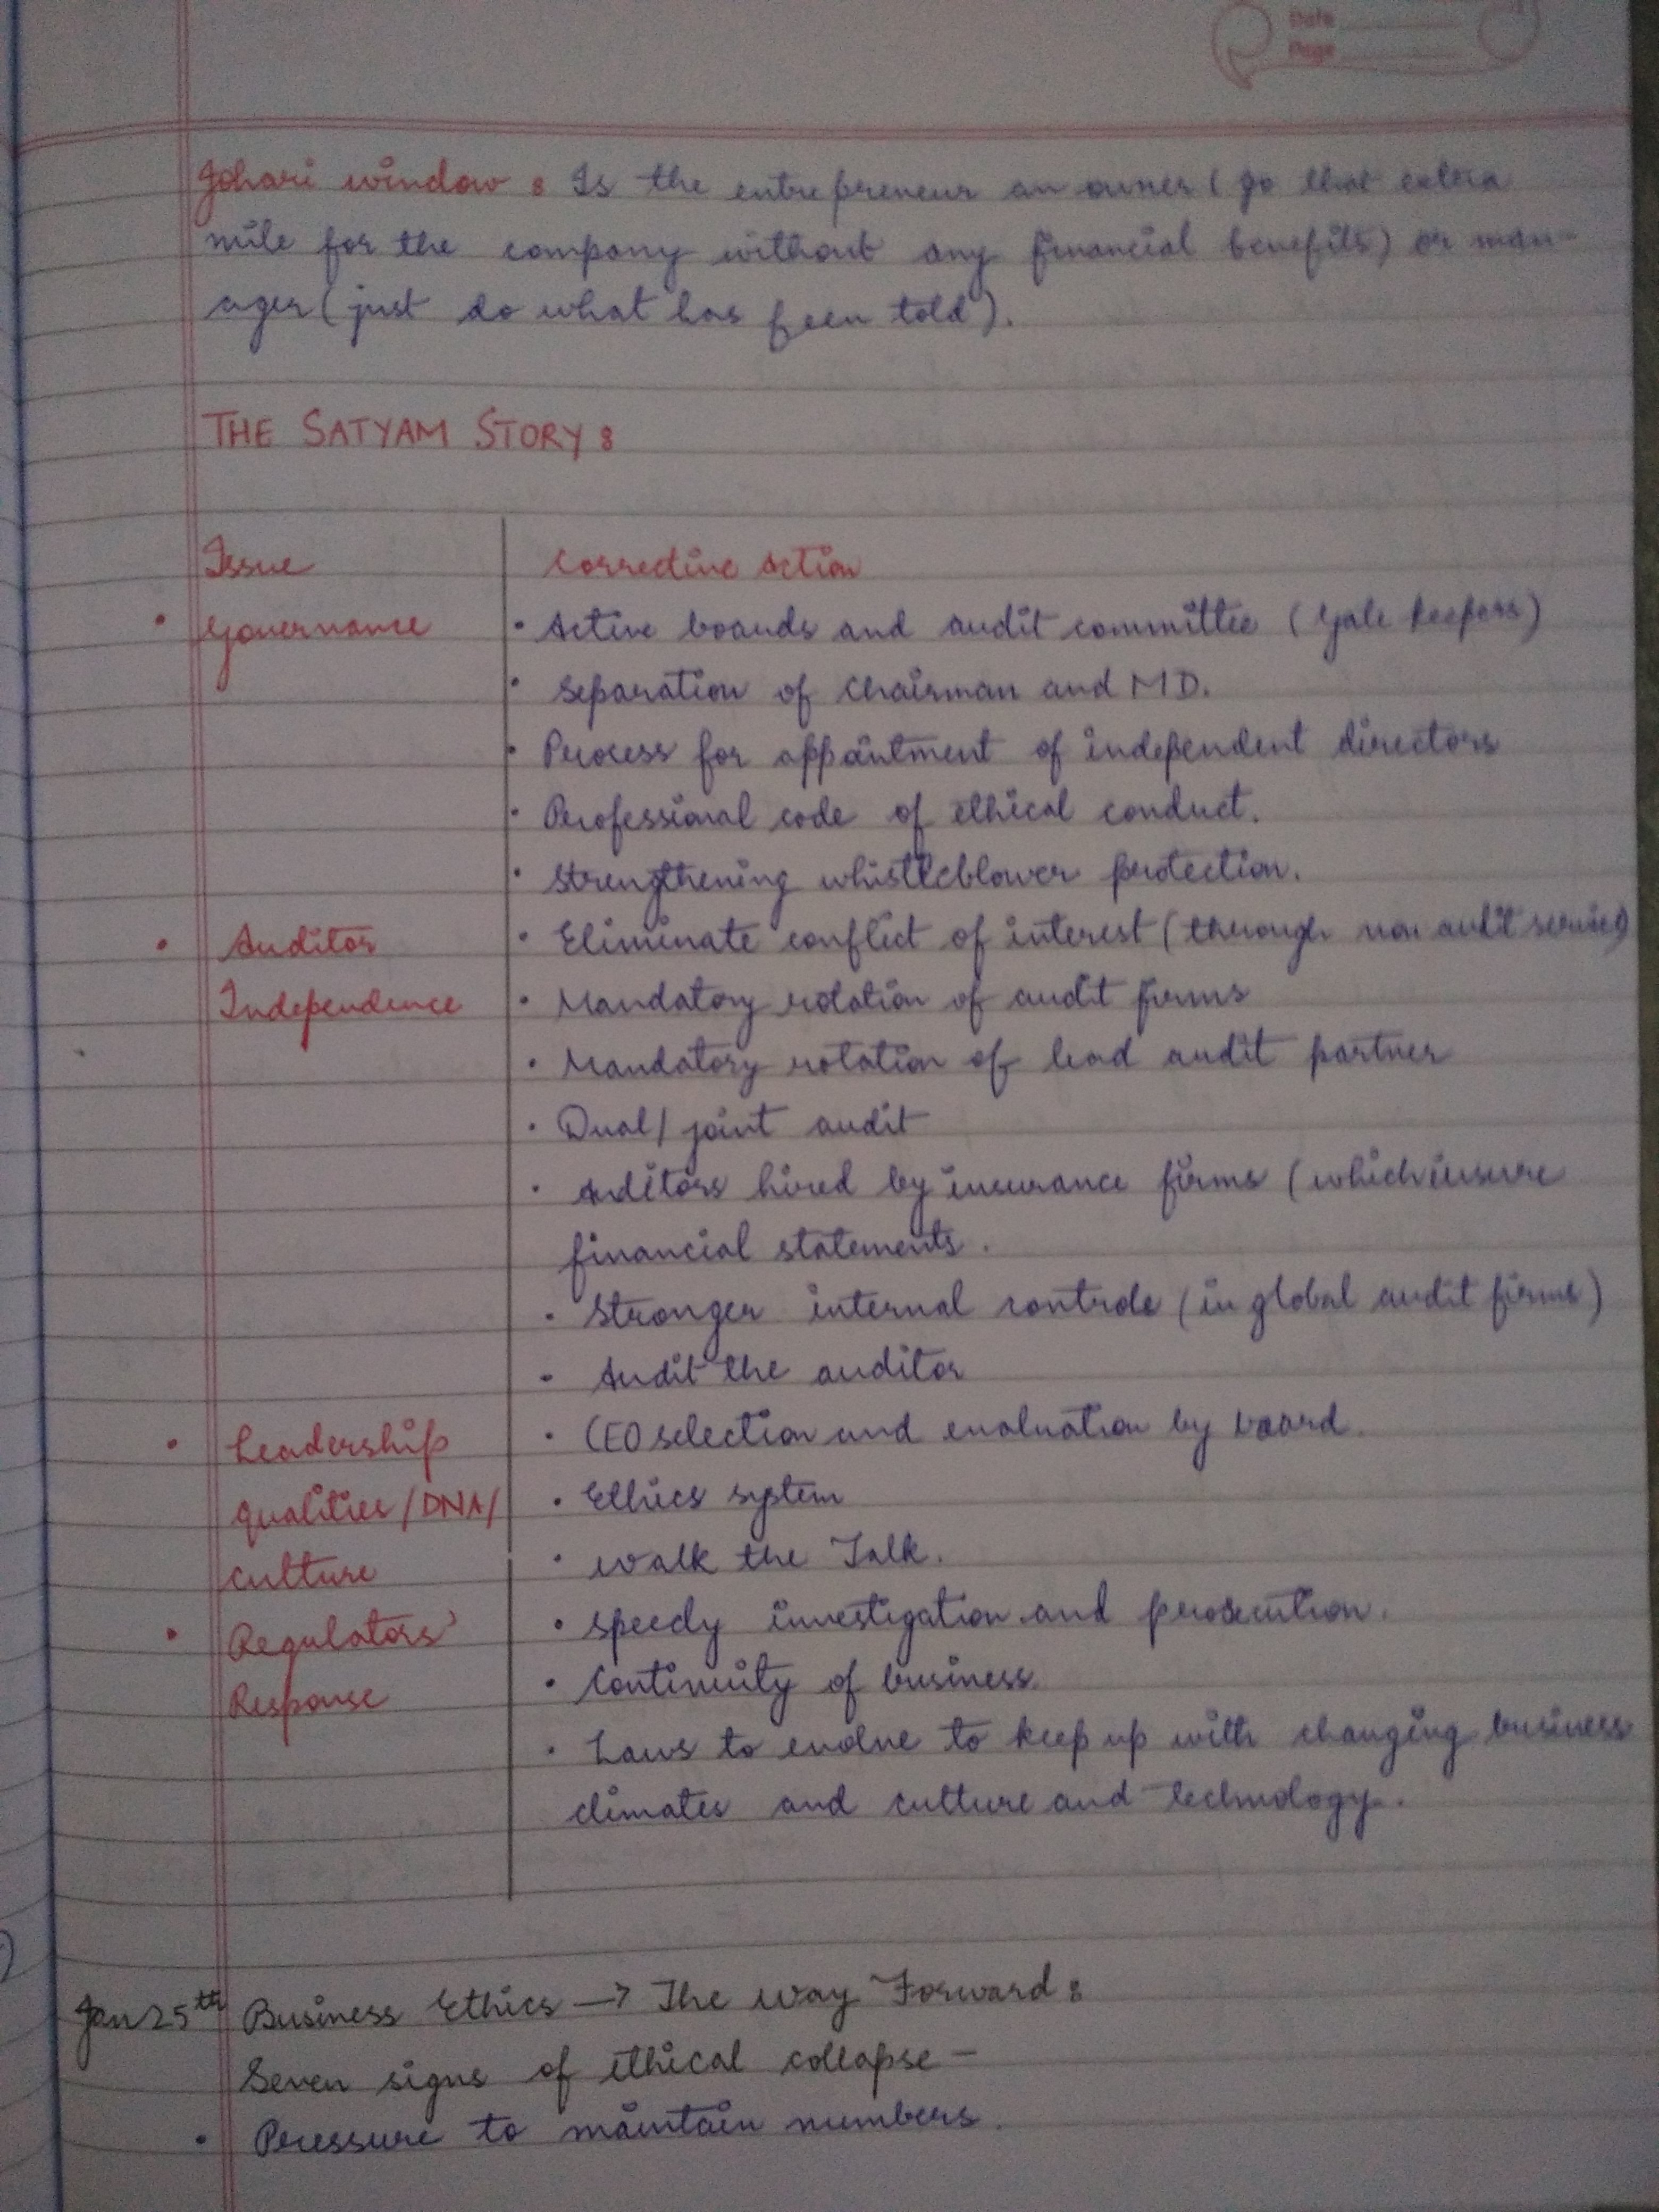 Date
Page
Johari window : Is the entrepreneur an owner ( go that extra
mile for the company without any financial benefits) or man-
ager ( just do what has been told ).
THE SATYAM STORY :
Issue Corrective Action
• Governance • Active boards and audit committee ( gate keepers)
• Separation of Chairman and MD.
• Process for appointment of independent directors
• Professional code of ethical conduct.
• Strengthening whistleblower protection.
• Auditor • Eliminate conflict of interest ( through non audit services)
Independence • Mandatory rotation of audit firms
• Mandatory rotation of lead audit partner
• Dual / joint audit
• Auditors hired by insurance firms ( which insure
financial statements .
• Stronger internal controls ( in global audit firms )
• Audit the auditor
• Leadership • CEO selection and evaluation by board.
qualities / DNA / • Ethics system
culture • Walk the Talk.
• Regulators' • Speedy investigation and prosecution.
Response • Continuity of business.
• Laws to evolve to keep up with changing business
climates and culture and technology.
Jan 25th Business Ethics → The Way Forward :
Seven signs of ethical collapse –
• Pressure to maintain numbers.